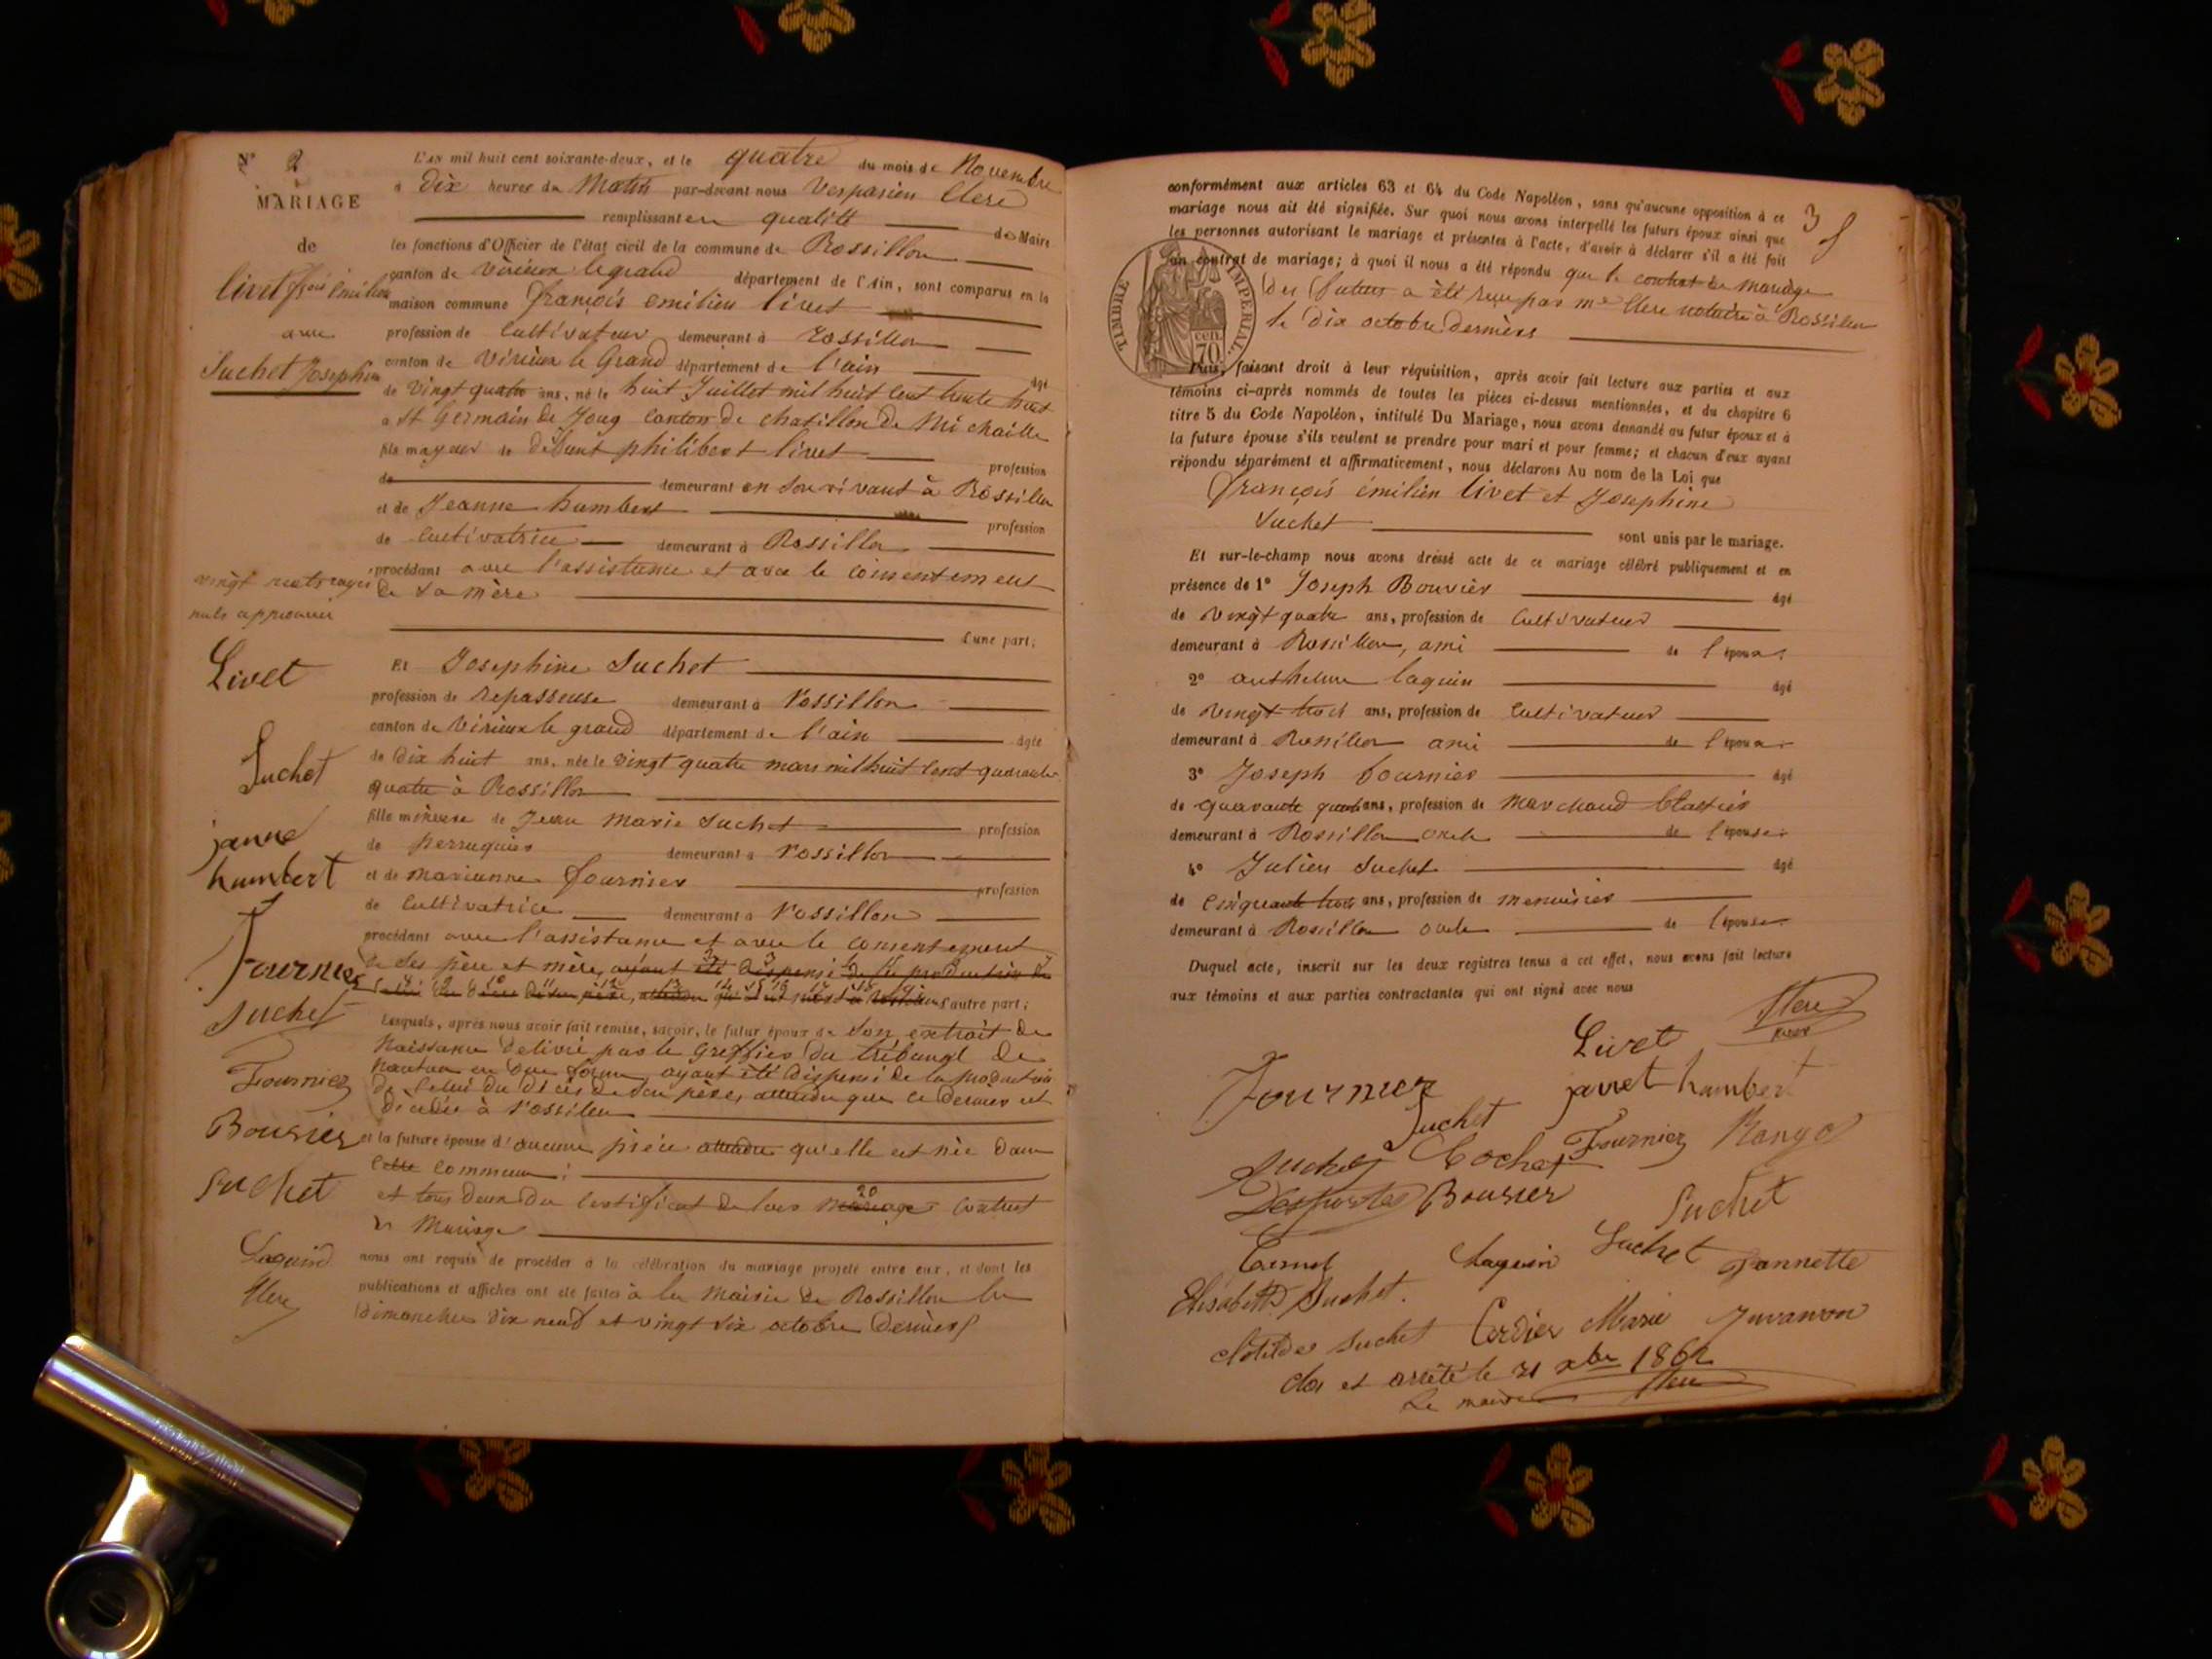 N° 2
MARIAGE
de
livet fçois émilien
avec
Suchet Josephine
vingt mots rayés
nuls approuvés
Livet
Suchet
janne
humbert
Fournier
Suchet
Fournier
Bouvier
Suchet
Laguin
Clerc
L'AN mil huit cent soixante-deux, et le quatre du mois de Novembre
à Dix heures du Matin par-devant nous Vespasien Clerc
remplissant en qualité de Maire
les fonctions d'Officier de l'état civil de la commune de Rossillon
canton de Virieux le grand département de l'Ain, sont comparus en la
maison commune françois emilien livet
profession de Cultivateur demeurant à rossillon
canton de Virieux le Grand département de l'ain âgé
de Vingt quatre ans, né le huit Juillet mil huit cent trente huit
à St Germain de Joug canton de chatillon de Michaille
fils majeur de défunt philibert livet profession
de demeurant en son vivant à Rossillon
et de Jeanne humbert profession
de Cultivatrice demeurant à Rossillon
procédant avec l'assistance et avec le consentement
de sa mère
d'une part;
Et Josephine Suchet
profession de repasseuse demeurant à rossillon
canton de Virieux le grand département de l'ain âgée
de dix huit ans, née le vingt quatre mars mil huit cent quarante
quatre à Rossillon
fille mineure de Jean Marie Suchet profession
de perruquier demeurant à rossillon
et de marianne fournier profession
de Cultivatrice demeurant à rossillon
procédant avec l'assistance et avec le consentement
de ses père et mère, ayant été dispensé de la production de
celui du décès de son père, attendu que d'autre part;
Lesquels, après nous avoir fait remise, savoir, le futur époux de son extrait de
Naissance délivré par le Greffier du tribunal de
Nantua en due forme, ayant été dispensé de la production
de celui du décès de son père, attendu que ce dernier est
décédé à rossillon
et la future épouse d'aucune pièce attendu qu'elle est née dans
cette commune;
et tous deux du certificat de leur mariage 20 contrat
de Mariage
nous ont requis de procéder à la célébration du mariage projeté entre eux, et dont les
publications et affiches ont été faites à la Mairie de Rossillon les
dimanches dix neuf et vingt six octobre derniers
3
conformément aux articles 63 et 64 du Code Napoléon, sans qu'aucune opposition à ce
mariage nous ait été signifiée. Sur quoi nous avons interpellé les futurs époux ainsi que
les personnes autorisant le mariage et présentes à l'acte, d'avoir à déclarer s'il a été fait
un contrat de mariage; à quoi il nous a été répondu que le contrat de mariage
des futurs a été reçu par me Clerc notaire à Rossillon
le dix octobre derniers
TIMBRE IMPERIAL
70 cen.
Puis, faisant droit à leur réquisition, après avoir fait lecture aux parties et aux
témoins ci-après nommés de toutes les pièces ci-dessus mentionnées, et du chapitre 6
titre 5 du Code Napoléon, intitulé Du Mariage, nous avons demandé au futur époux et à
la future épouse s'ils veulent se prendre pour mari et pour femme; et chacun d'eux ayant
répondu séparément et affirmativement, nous déclarons Au nom de la Loi que
françois émilien livet et Josephine
Suchet sont unis par le mariage.
Et sur-le-champ nous avons dressé acte de ce mariage célébré publiquement et en
présence de 1° Joseph Bouvier âgé
de vingt quatre ans, profession de Cultivateur
demeurant à Rossillon, ami de l'époux.
2° anthelme laguin âgé
de vingt trois ans, profession de Cultivateur
demeurant à Rossillon ami de l'époux
3° Joseph fournier âgé
de quarante quatre ans, profession de marchand
demeurant à Rossillon oncle de l'épouse
4° Julien Suchet âgé
de cinquante trois ans, profession de menuisier
demeurant à Rossillon oncle de l'épouse
Duquel acte, inscrit sur les deux registres tenus à cet effet, nous avons fait lecture
aux témoins et aux parties contractantes qui ont signé avec nous
Clerc
maire
Livet
Fournier
janet humbert
Suchet
Suchet Cochet Fournier
Bouvier
Suchet
Laguin Suchet Jannette
Elisabeth Suchet.
Clotilde Suchet Cordier Marie Juvanon
clos et arrêté le 31 xbre 1862
Le maire Clerc